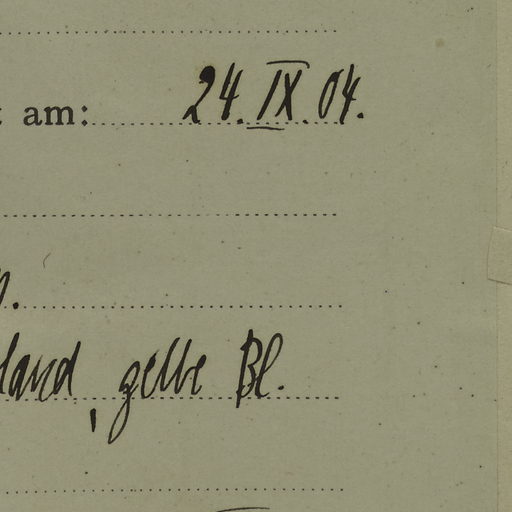 am: 24. IX. 04.
land, gelbe Bl.